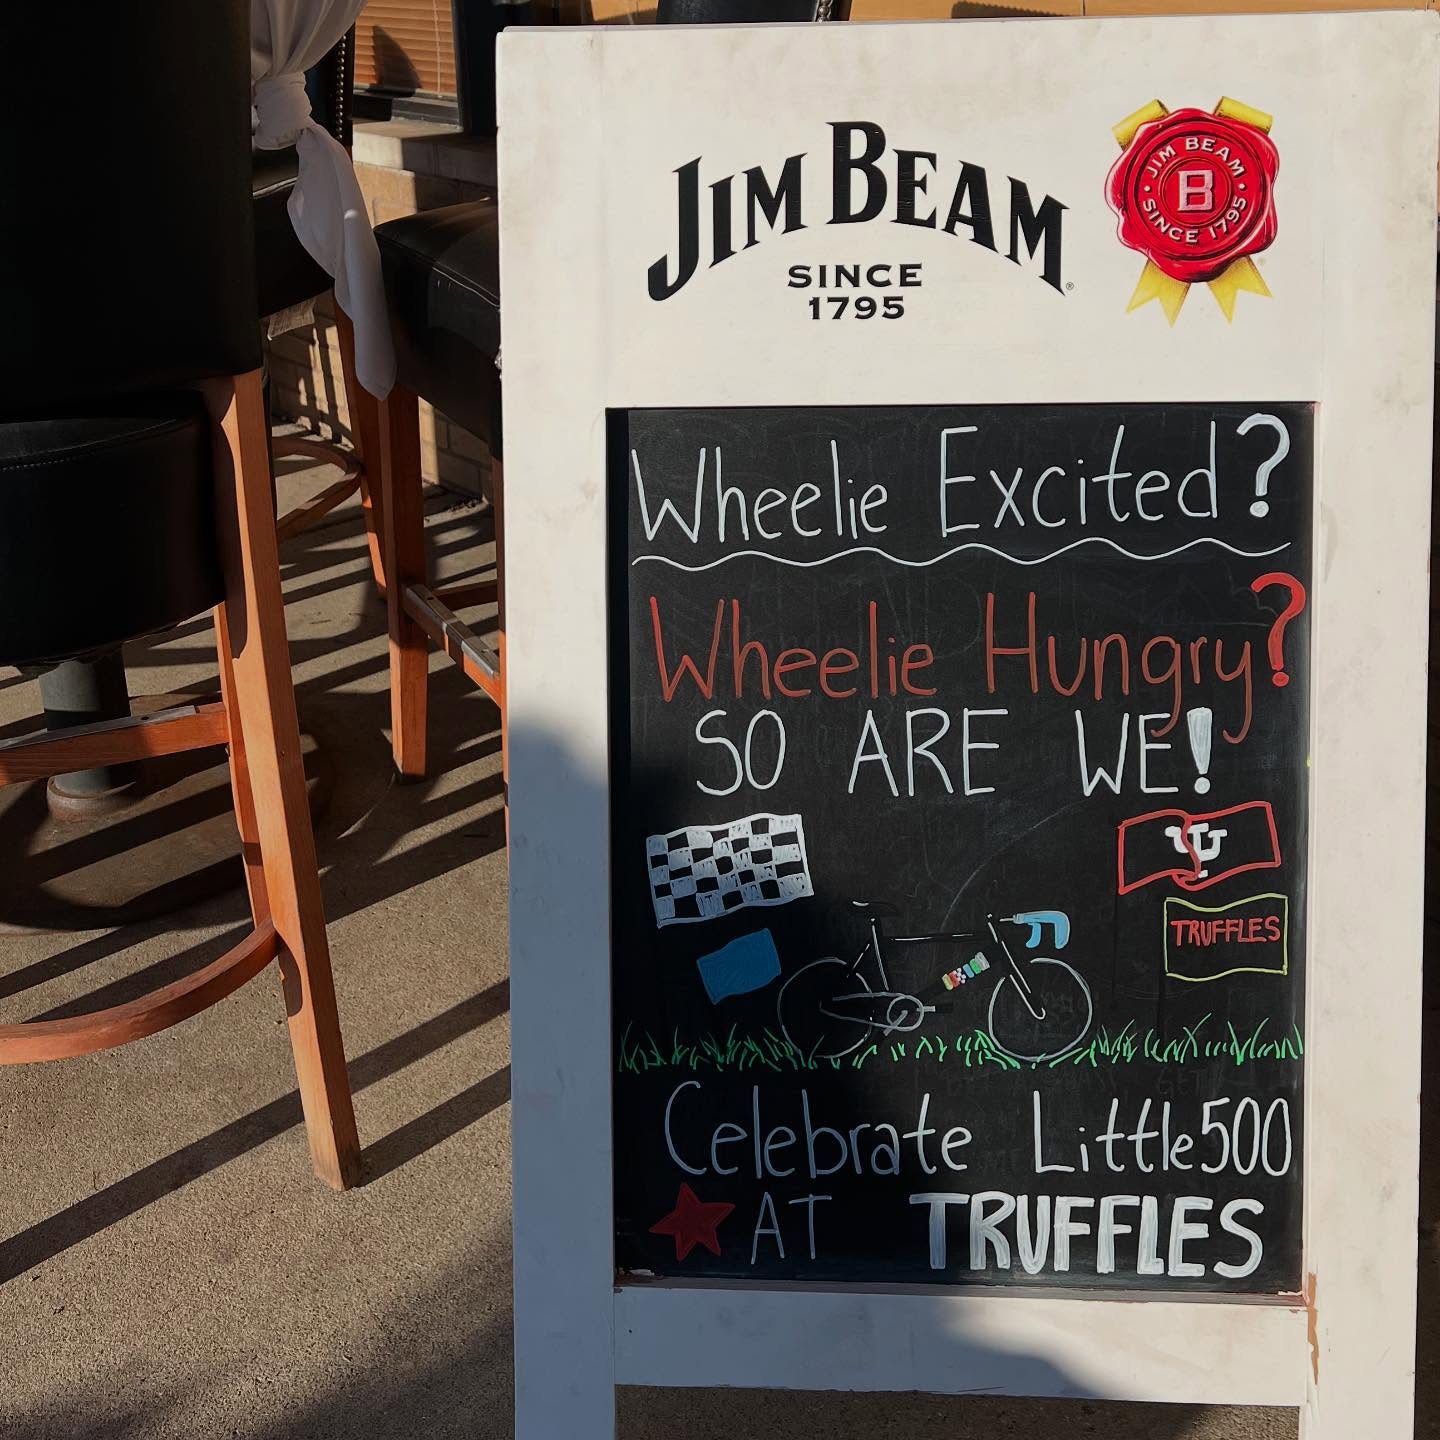 JIM BEAM
SINCE
1795
JIM BEAM
B
SINCE 1795
Wheelie Excited?
Wheelie Hungry?
SO ARE WE!
IU
TRUFFLES
Celebrate Little500
AT TRUFFLES